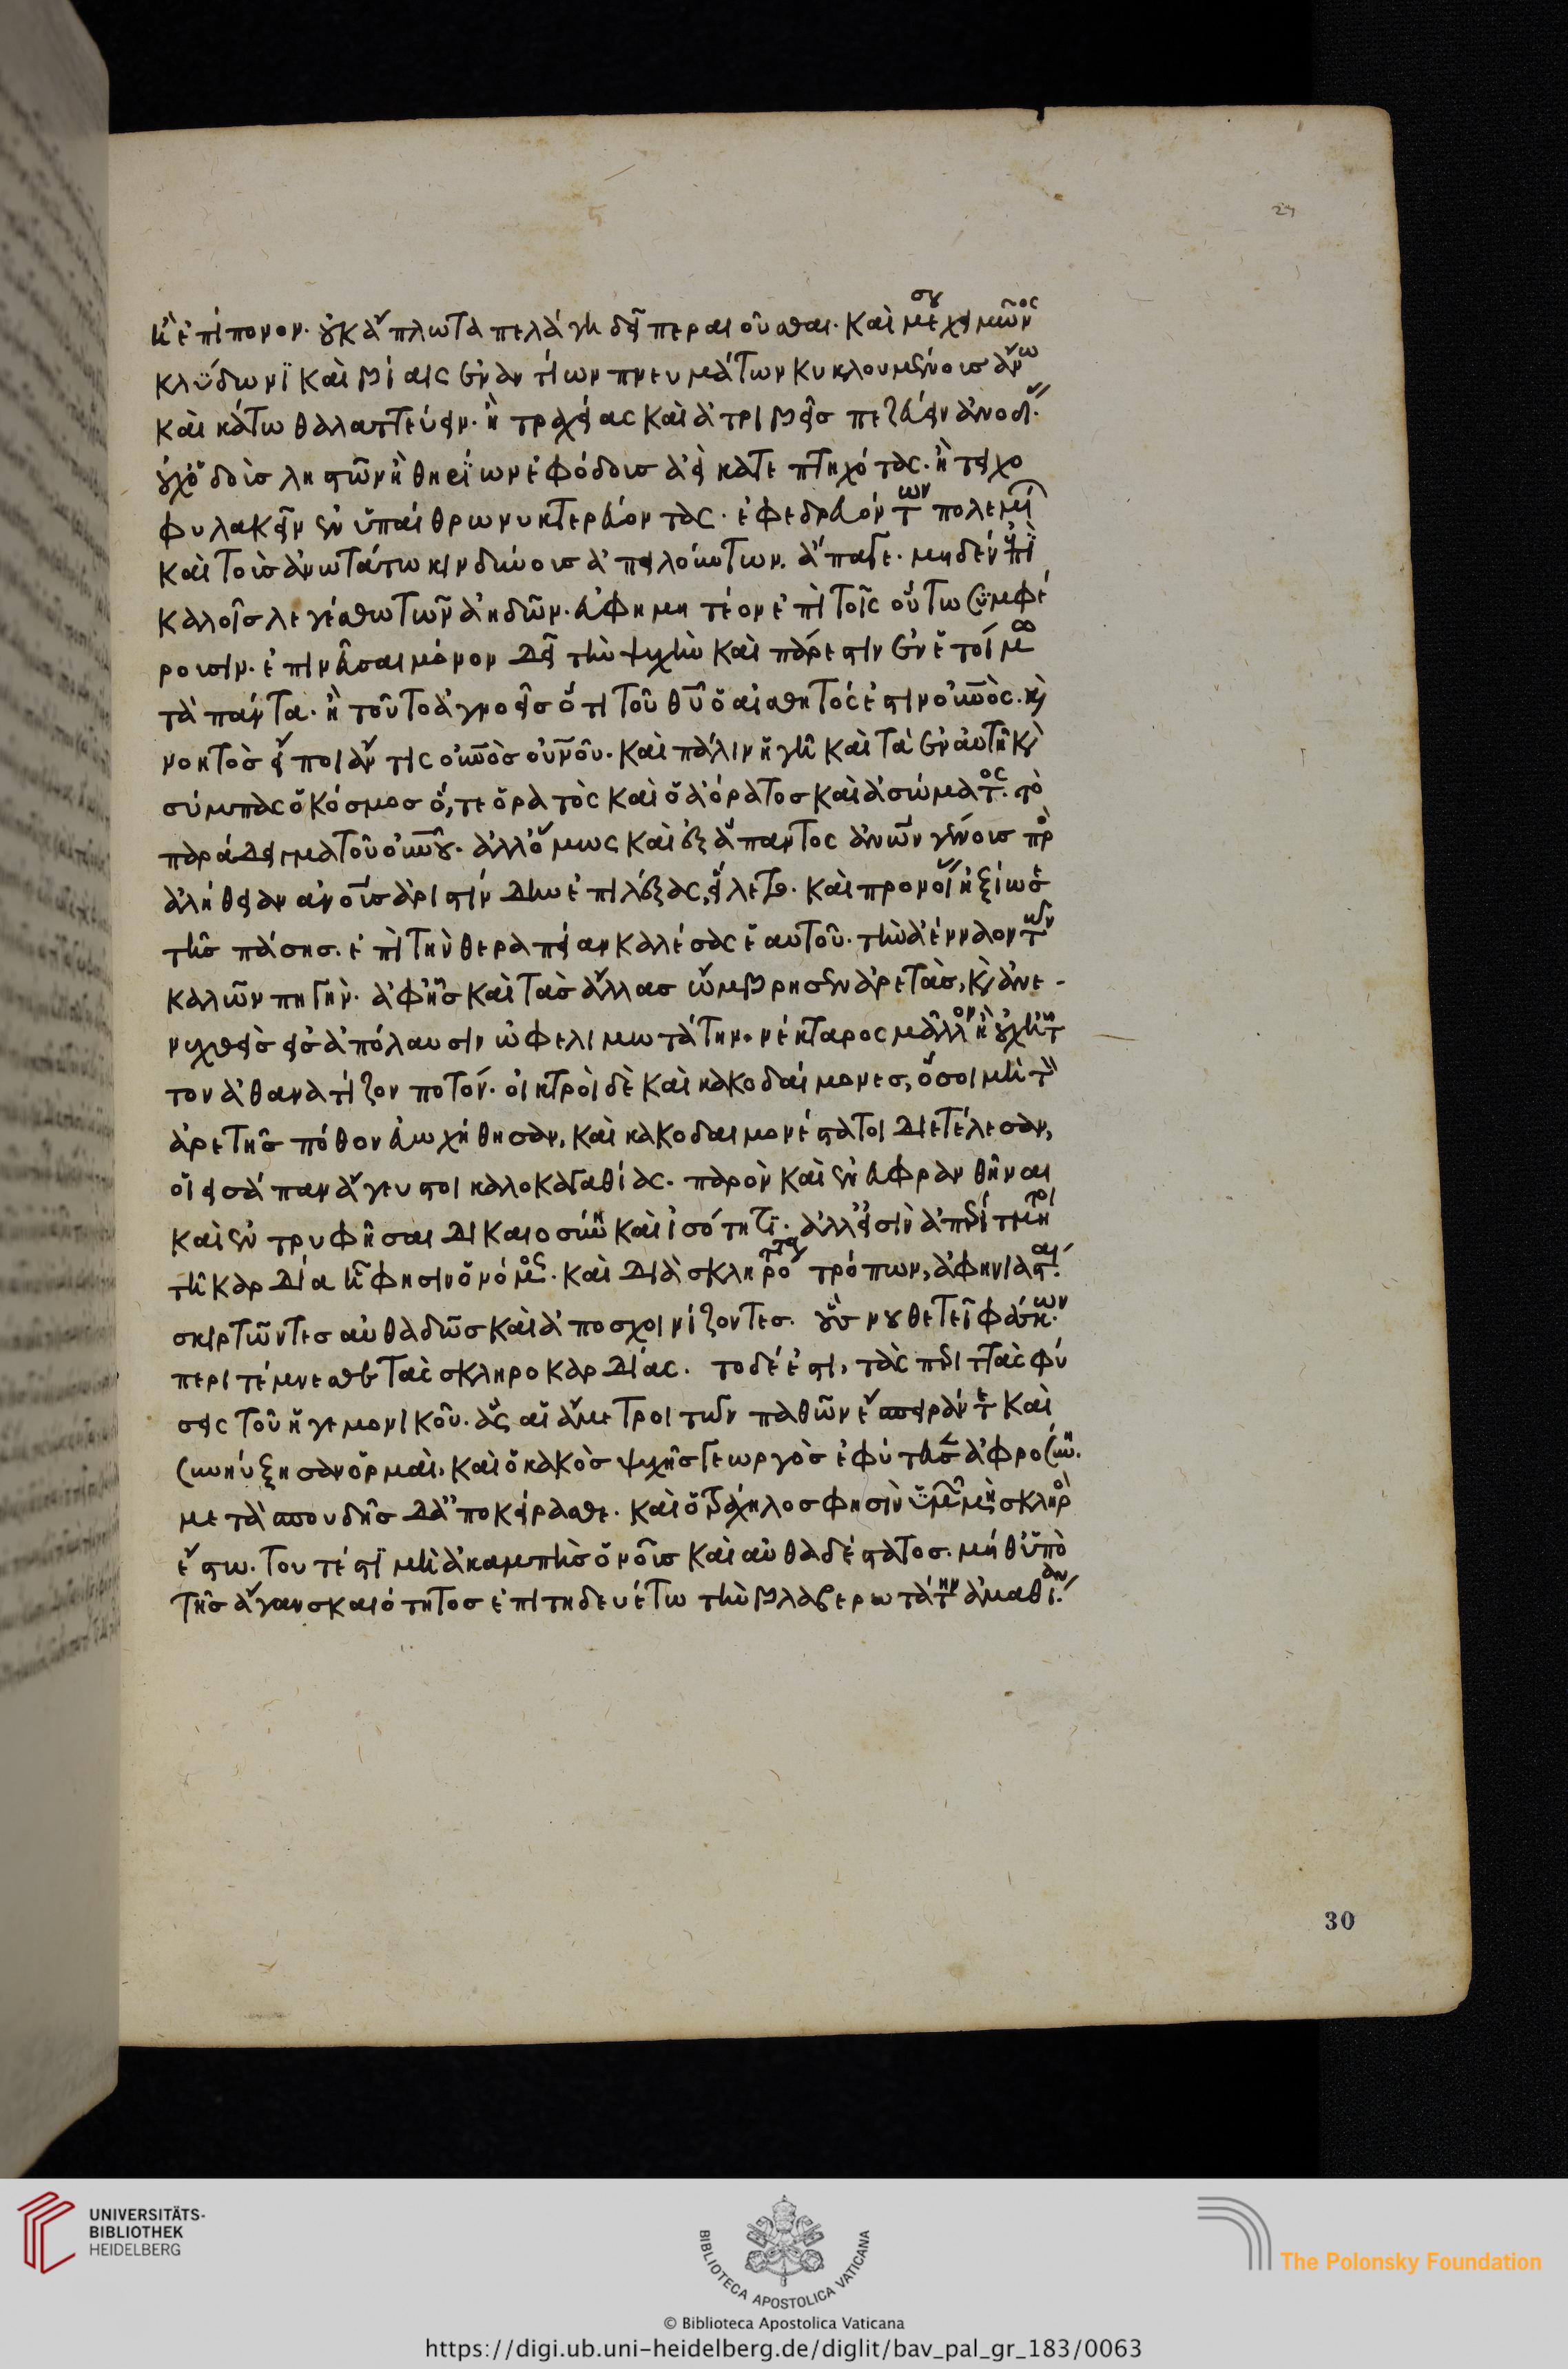 ἢ ἐπίπονον. οὐκ ἄπλωτα πελάγη δεῖ περαιοῦσθαι. καὶ μεσοῦ χειμῶνος
κλύδωνι καὶ βίαις ἐναντίων πνευμάτων κυκλουμένοις ἄνω
καὶ κάτω θαλαττεύειν. ἢ τραχείας καὶ ἀτριβεῖς πεζεύειν ἀνοδί
οὐχ ὁδοῖς ληστῶν ἢ θηρίων ἐφόδοις ἀεὶ κατεπτηχότας. ἢ τειχο
φυλακεῖν ἐν ὑπαίθρω νυκτερεύοντας. ἐφεδρευόντων πολεμί
καὶ τοὺς ἀνωτάτω κινδύνους ἀπειλούντων. ἄπαγε. μηδὲν ἐπὶ
καλοῖς λεγέσθω τῶν ἀηδῶν. εὐφημητέον ἐπὶ τοῖς οὕτω συμφέ
ρουσιν. ἐπινεῦσαι μόνον δεῖ τὴν ψυχὴν καὶ πάρεστιν ἐν ἑτοίμω
τὰ πάντα. ἢ τοῦτο ἀγνοεῖς ὅτι τοῦ θυ ὁ αἰσθητός ἐστιν οὐνὸς. καὶ
νοητὸς εἴποι ἄν τις οὐνὸς οὐνοῦ. καὶ πάλιν ἡ γῆ καὶ τὰ ἐν αὐτῇ καὶ
σύμπας ὁ κόσμος ὅ, τε ὁρατὸς καὶ ὁ ἀόρατος καὶ ἀσώματος. τὸ
παράδειγμα τοῦ οὐνοῦ. ἀλλ' ὅμως καὶ ἐξ ἅπαντος ἀνων γένους πρ
ἀλήθειαν ανους ἀριστίνδην ἐπιλέξας, εἵλετο. καὶ προνοίας ἠξίωσε
τῆς πάσης. ἐπὶ τὴν θεραπείαν καλέσας ἑαυτοῦ. τὴν ἀένναον τῶν
καλῶν πηγήν. ἀφ' ἧς καὶ τὰς ἄλλας ὤμβρησεν ἀρετὰς, καὶ ἀνε-
νεχθεὶς εἰς ἀπόλαυσιν ὠφελιμωτάτην. νέκταρος μᾶλλον ἢ οὐχ ἧττ
τον ἀθανατίζον ποτόν. οἰκτροὶ δὲ καὶ κακοδαίμονες, ὅσοι μὴ τὸν
ἀρετῆς πόθον εὐωχήθησαν, καὶ κακοδαιμονέστατοι διετέλεσαν,
οἱ εἰσάπαν ἄγευστοι καλοκἀγαθίας. παρὸν καὶ ἐνευφρανθῆναι
καὶ ἐντρυφῆσαι δικαιοσύνῃ καὶ ἰσότητι. ἀλλ' εἰσὶν ἀπερίτμητοι
τῇ καρδίᾳ ᾗ φησιν ὁ νόμος. καὶ διὰ σκληρότητα τρόπων, ἀφηνιασταί.
σκιρτῶντες αὐθαδῶς καὶ ἀποσχοινίζοντες. οὓς νουθετεῖ φάσκων.
περιτέμνεσθε τὰς σκληροκαρδίας. τὸ δέ ἐστι, τὰς περιττὰς φύ
σεις τοῦ ἡγεμονικοῦ. ἃς αἱ ἄμετροι τῶν παθῶν ἔσπειράν τε καὶ
συνηύξησαν ὁρμαὶ. καὶ ὁ κακὸς ψυχῆς γεωργὸς ἐφύτευσεν ἀφροσύνη.
μετὰ σπουδῆς δ' ἀποκείρασθε. καὶ ὁ τράχηλος φησὶν ὑμῶν μὴ σκληρὸς
ἔστω. τουτέστι μὴ ἀκαμπὴς ὁ νοῦς καὶ αὐθαδέστατος. μήθ' ὑπὸ
τῆς ἄγαν σκαιότητος ἐπιτηδευέτω τὴν βλαβερωτάτην ἀμαθίαν.
24
30
UNIVERSITÄTS-
BIBLIOTHEK
HEIDELBERG
BIBLIOTECA APOSTOLICA VATICANA
The Polonsky Foundation
© Biblioteca Apostolica Vaticana
https://digi.ub.uni-heidelberg.de/diglit/bav_pal_gr_183/0063